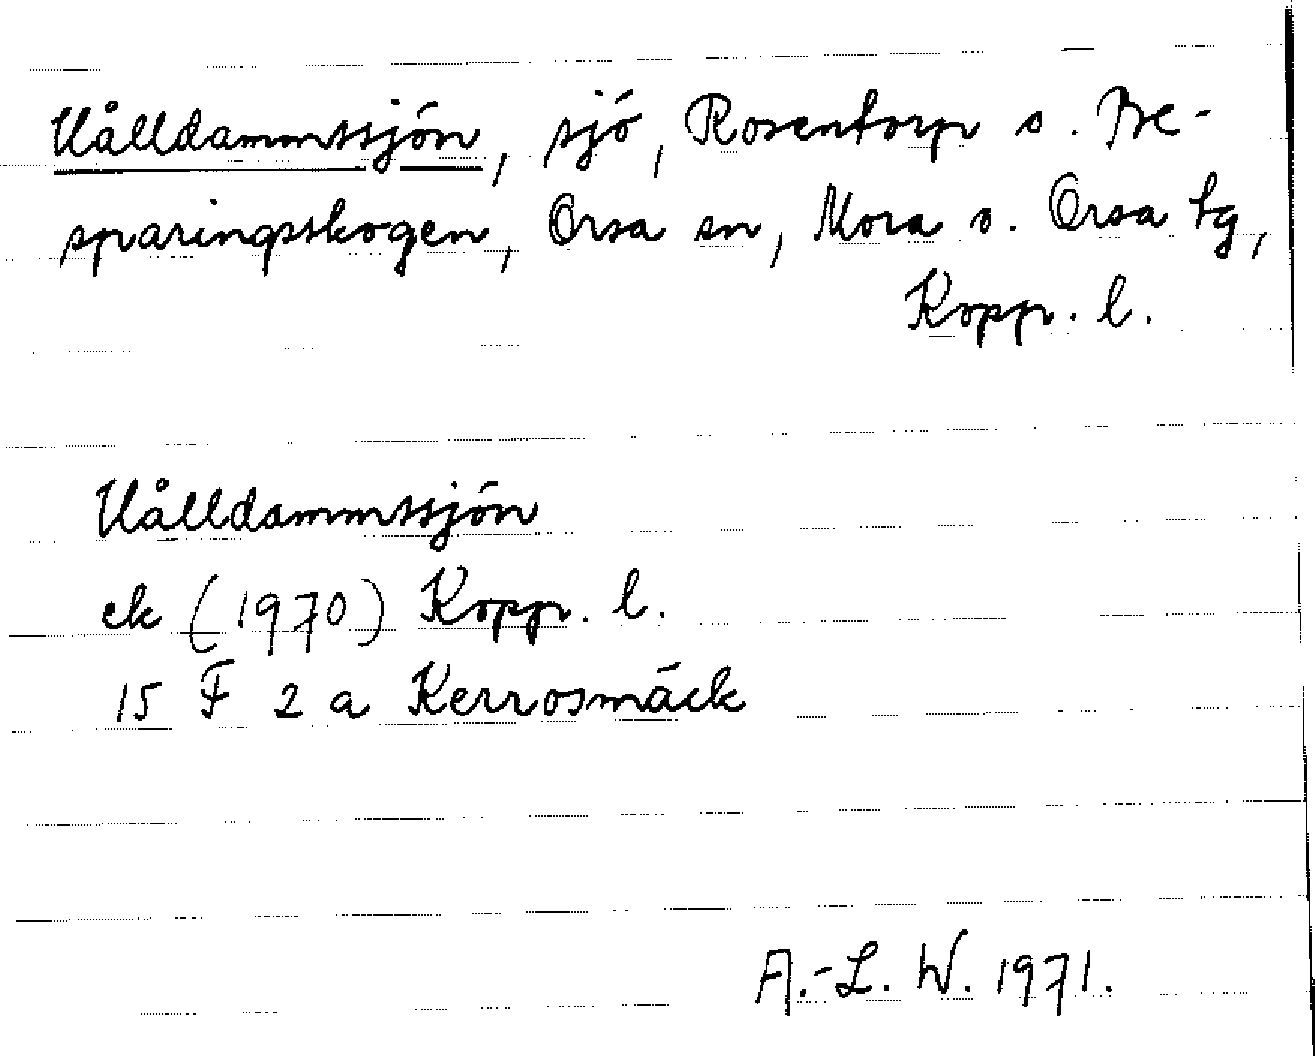 Vålldammssjön, sjö, Rosentorp o. Be-
sparingsskogen, Orsa sn, Mora o. Orsa tg,
Kopp. l.
Vålldammssjön
ek (1970) Kopp. l.
15 F 2 a Kerrosmäck
A.-L. W. 1971.